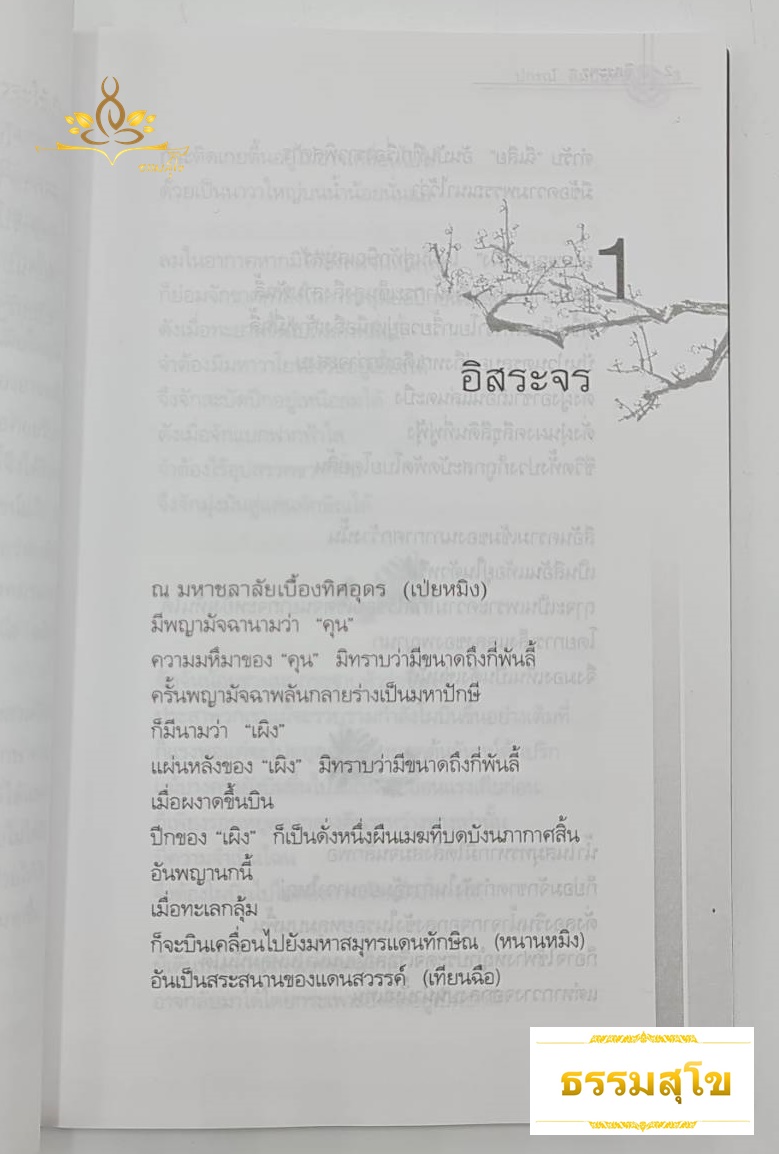 1
อิสระจร
ณ มหาชลาลัยเบื้องทิศอุดร (เป่ยหมิง)
มีพญามัจฉานามว่า “คุน”
ความมหึมาของ “คุน” มิทราบว่ามีขนาดถึงกี่พันลี้
ครั้นพญามัจฉาพลันกลายร่างเป็นมหาปักษี
ก็มีนามว่า “เผิง”
แผ่นหลังของ “เผิง” มิทราบว่ามีขนาดถึงกี่พันลี้
เมื่อผงาดขึ้นบิน
ปีกของ “เผิง” ก็เป็นดั่งหนึ่งผืนเมฆที่บดบังนภากาศสิ้น
อันพญานกนี้
เมื่อทะเลกลุ้ม
ก็จะบินเคลื่อนไปยังมหาสมุทรแดนทักษิณ (หนานหมิง)
อันเป็นสระสนานของแดนสวรรค์ (เทียนฉือ)
ธรรมสุโข